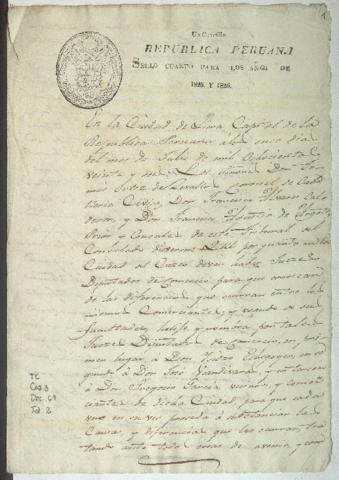 Un Cuartillo
REPUBLICA PERUANA
SELLO CUARTO PARA LOS AÑOS DE
1825 Y 1826.
En la Ciudad de Lima Capital de la
Republica Peruana a los once dias
del mes de Julio de mil ochocientos
veinte y seis Los Señores Don
Coronel de
Civica, Don Francisco Alvarez Cal
deron, y Don Francisco
Prior y Consules de este Tribunal del
Consulado dixeron: Que por quanto en la
Ciudad del Cuzco deven haber Jueces
Diputados de Comercio para que conoscan
de las diferencias que ocurran entre los
mismos Comerciantes, y usando de sus
facultades, eligio y nombra por tales
Jueces Diputados de Comercio, en pri
mer lugar a Don Isidro en se
gundo a Don José y en tercero
a Don Gregorio Garcia vecinos, y comer
ciantes de dicha Ciudad, para que cada
uno en su vez proceda a substanciar las
Causas, y diferencias que les ocurran, tra
tando ante todas cosas de avenir, y com
TC
Caj. 3
Doc. 69
Fol. 2